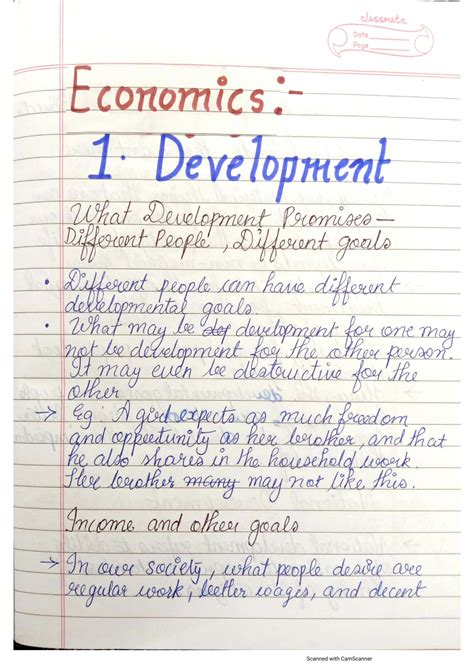 classmate
Date
Page
Economics:-
1. Development
What Development Promises—
Different People, Different goals
• Different people can have different
developmental goals.
• What may be def development for one may
not be development for the other person.
It may even be destructive for the
other
→ Eg: A girl expects as much freedom
and oppertunity as her brother, and that
he also shares in the household work.
Her brother many may not like this.
Income and other goals
→ In our society, what people desire are
regular work, better wages, and decent
Scanned with CamScanner